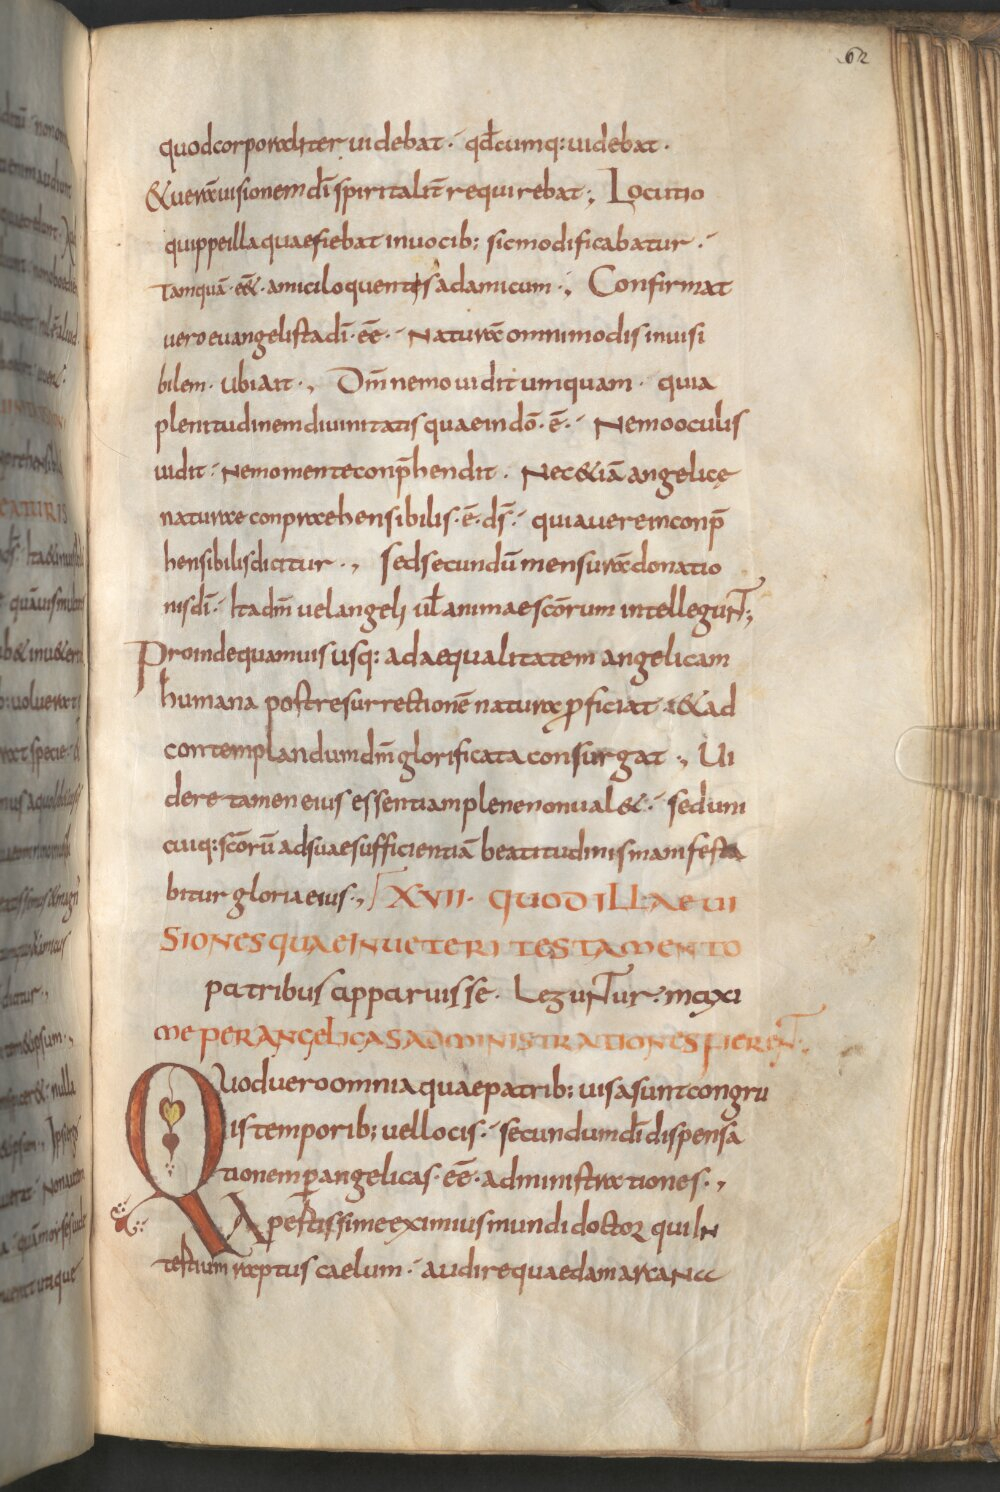 62
quodcorporaliter uidebat · qđcumq: uidebat ·
&uera uisionem dī spiritalit̄ requirebat ; Locutio
quippe illa quae fiebat in uocib; sic modificabatur ·
Tamquā · e&̄ · amici loquentis ad amicum ·, Confirmat
uero euangelista dī · eē · Natura omnimodis inuisi
bilem · ubi ait ·, Dm̄ nemo uidit umquam · quia
plenitudinem diuinitatis quae in dō · ē · Nemo oculis
uidit · Nemo mente conp̄hendit · Nec &iā angelicę
naturae conpraehensibilis · ē · ds̄ · quia uere inconp̄
hensibilis dicitur ·, sed secundū mensura donatio
nis dī · Ita dm̄ uel angeli uł animae scōrum intellegunt ;
Proinde quamuis usq: ad aequalitatem angelicam
humana post resurrectionē natura ꝓficiat · & ad
contemplandum dm̄ glorificata consurgat ·, Ui
dere tamen eius essentiam plene non ual& · sed uni
cuiq: scōrū ad suae sufficientiā beatitudinis manifesta
bitur gloria eius ·, XVII · QUOD ILLAE UI
SIONES QUAE IN UETERI TESTAMENTO
patribus apparuisse · Leguntur · maxi
ME PER ANGELICAS ADMINISTRATIONES FIERENT ·
Quod uero omnia quae patrib; uisa sunt congru
is temporib; uel locis · secundum dī dispensa
tionem ꝑ angelicas · eē · administrationes ·,
Apertissime eximius mundi doctor qui in
tertium raptus caelum · audire quaedam arcana